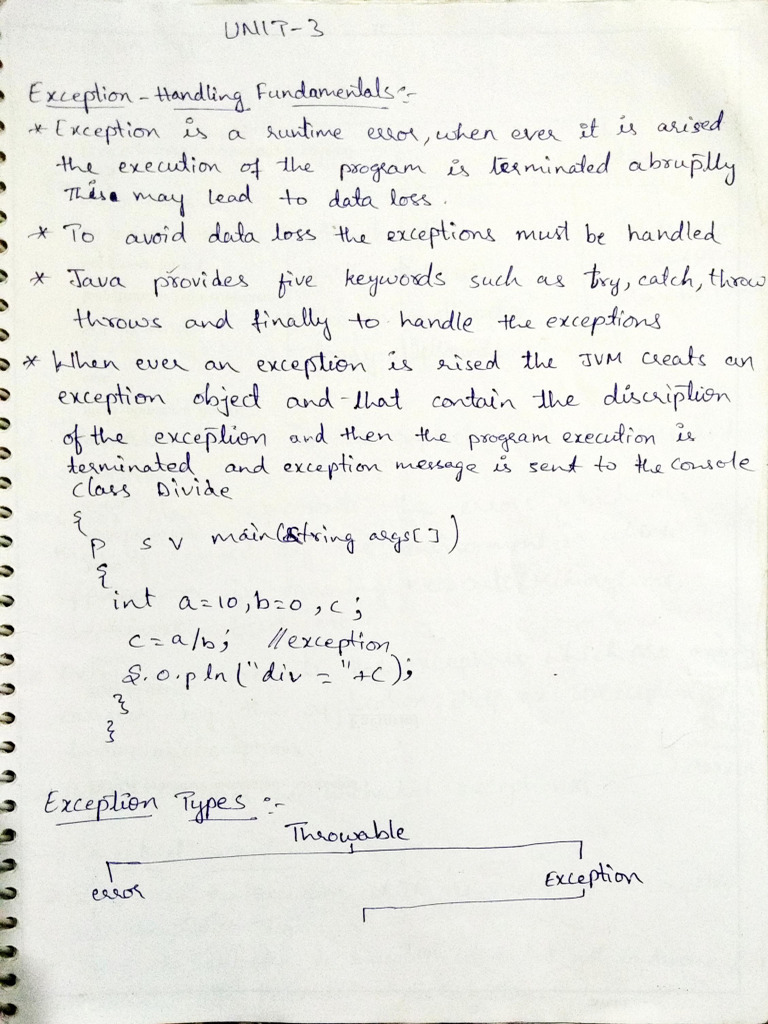 UNIT-3
Exception-Handling Fundamentals:-
* Exception is a runtime error, when ever it is arised
the execution of the program is terminated abruptlly
This may lead to data loss.
* To avoid data loss the exceptions must be handled
* Java provides five keywords such as try, catch, throw
throws and finally to handle the exceptions
* When ever an exception is rised the JVM creats an
exception object and that contain the discription
of the exception and then the program execution is
terminated and exception message is sent to the console
Class Divide
{
p s v main(string args[])
{
int a=10,b=0,c;
c=a/b; //exception
S.o.pln("div = "+c);
}
}
Exception Types :-
Throwable
error Exception